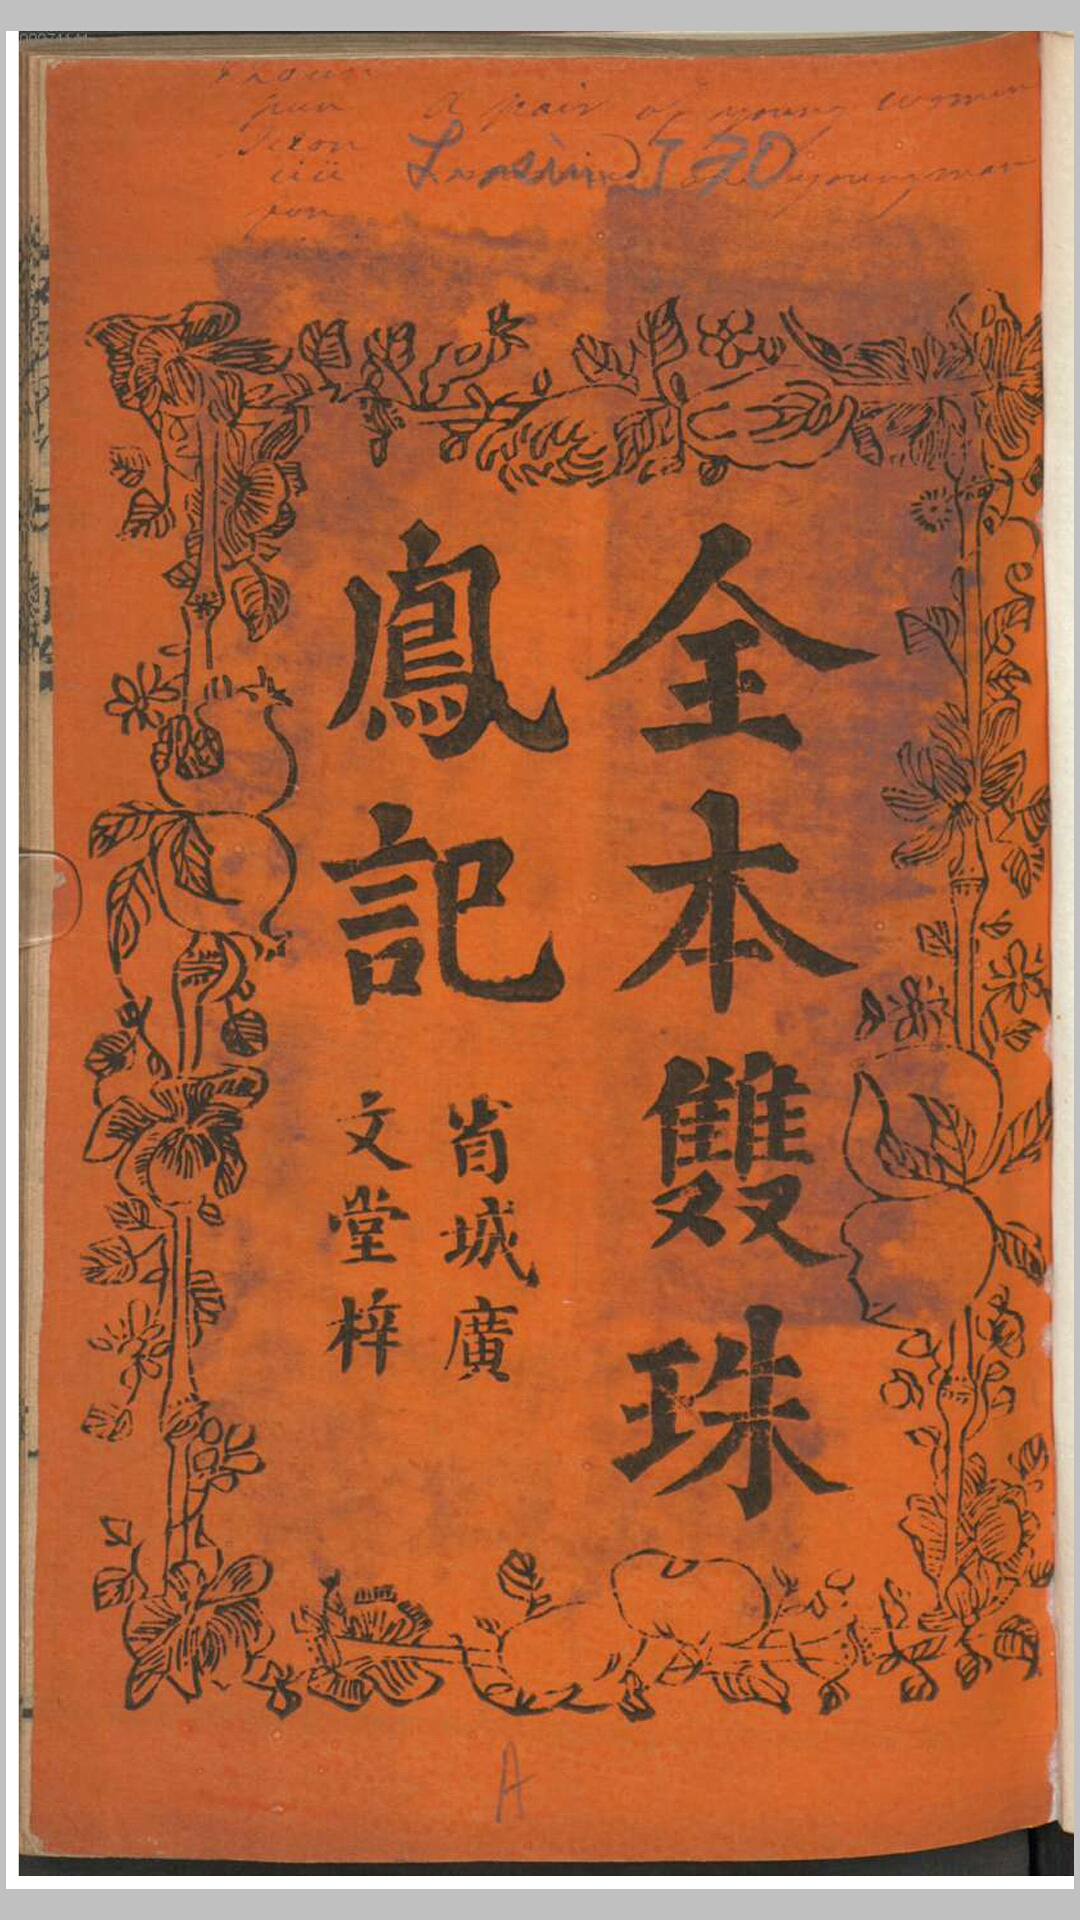 A pair of young women
one young man
全本雙珠
鳳記
省城廣
文堂梓
A